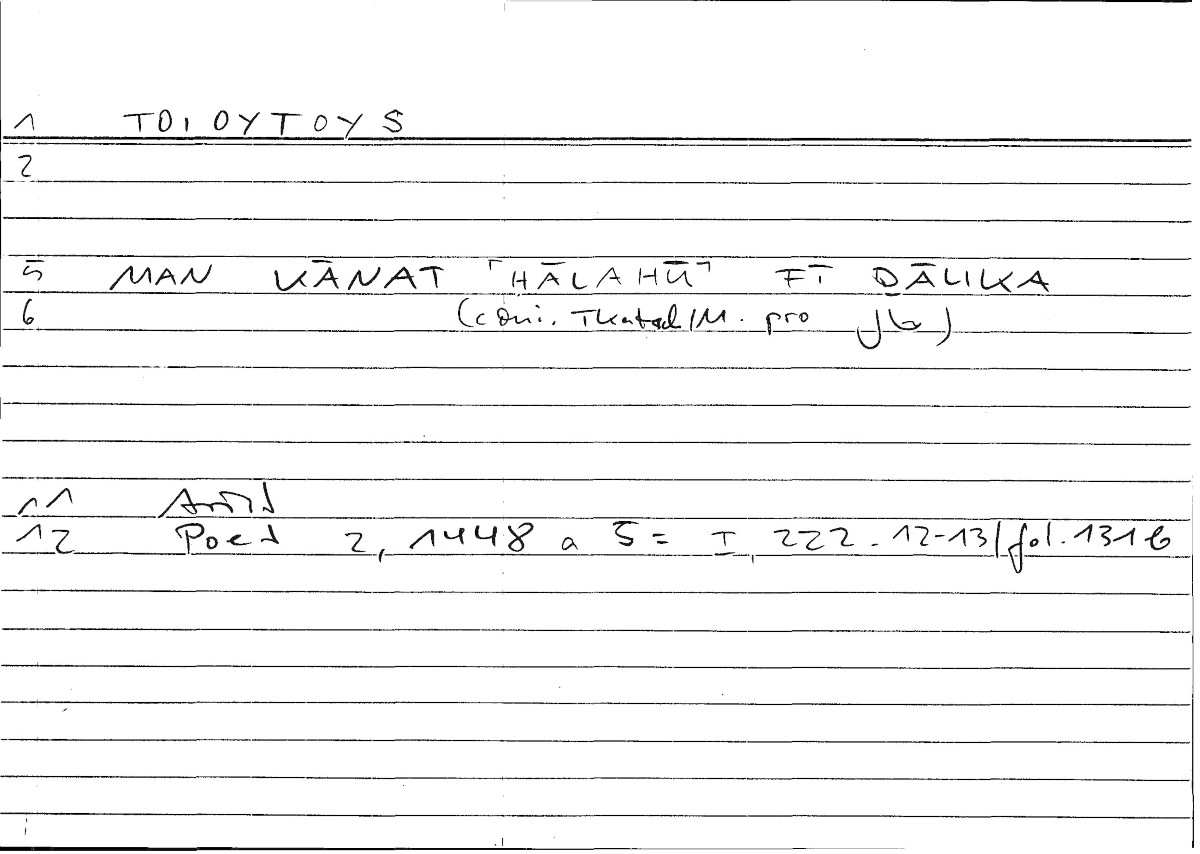 1 TOIOYTOYS
2
5 MAN KĀNAT ⌜HĀLAHŪ⌝ FĪ ḎĀLIKA
6 (coni. Tkatsch/M. pro
11 Arist
12 Poet 2, 1448 a 5 = I, 222.12-13/fol.131b